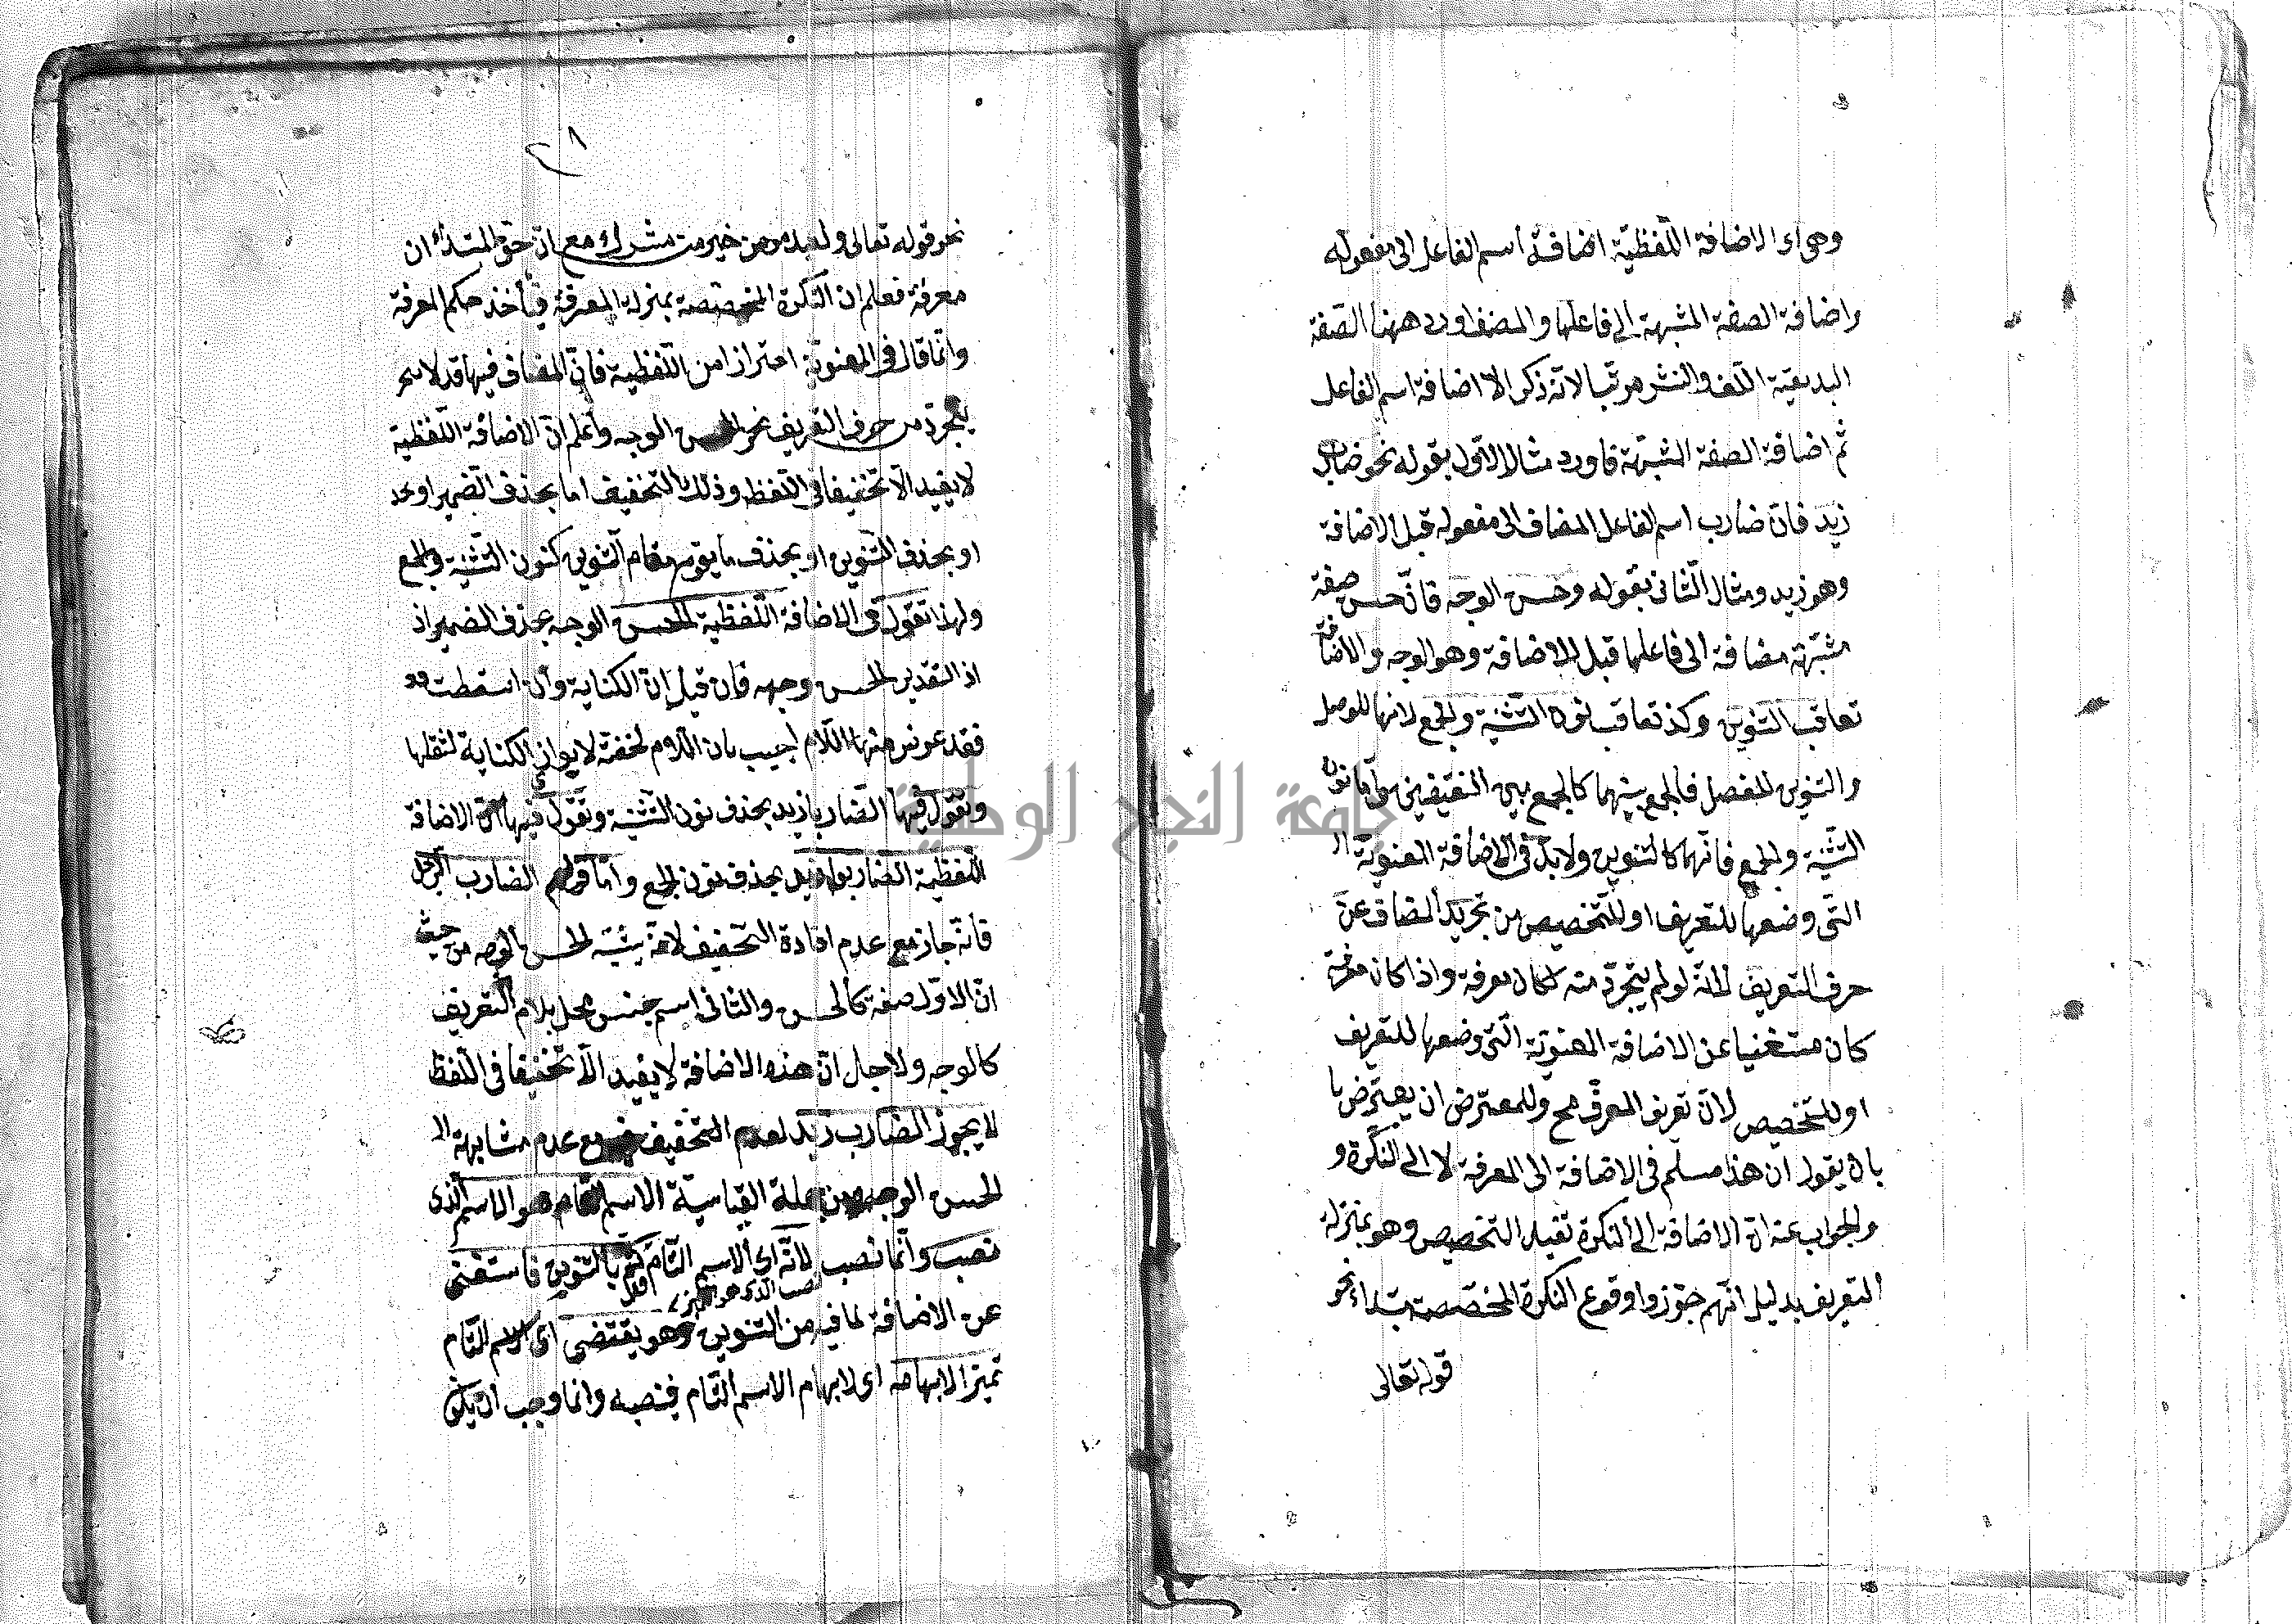 وهى اى الاضافة اللفظيّة اضافة اسم الفاعل الى مفعوله
واضافة الصفة المشبهة الى فاعلها والمصنف اورد ههنا الصفة
البديعية اللف والنشر مرتبا لانه ذكر الا اضافة اسم الفاعل
ثم اضافة الصفة المشبّهة فاورد مثالا الاوّل بقوله نحو ضارب
زيد فان ضارب اسم الفاعل المضاف الى مفعوله قبل الاضافة
وهو زيد ومثال الثانى بقوله وحسن الوجه فانّ حسن صفة
مشبّهة مضافة الى فاعلها قبل الاضافة وهو الوجه والاضافة
تعاقب التنوين وكذ تعاقب نون التثنية والجمع لانها للوصل
والتنوين للفصل فالجمع بينهما كالجمع بين النقيضين وامّا نون
التثنية والجمع فانّهما كالتنوين ولا بدّ فى الاضافة المعنويّة ال
التى وضعها للتعريف او للتخصيص من تجريد المضاف عن
حرف التعريف لانّه لو لم يتجرّد منه لكان معرفة واذا كان معرفة
كان مستغنيا عن الاضافة المعنويّة التى وضعها للتعريف
او للتخصيص لان تعريف المعرّف مح وللمعترض ان يعترض با
بان يقول ان هذا مسلم فى الاضافة الى المعرفة لا الى النكرة و
والجواب عنه انّ الاضافة الى النكرة تفيد التخصيص وهو بمنزلة
التعريف بدليل انهم جوّزوا وقوع النكرة المخصّصة مبتداء نحو
قوله تعالى
٢٨
نحو قوله تعالى ولعبد مومن خير من مشرك مع انّ حق المبتداء ان
معرفة فعلم ان النكرة المخصّصة بمنزلة المعرفة فيأخذ حكم المعرفة
وانّما قال فى المعنويّة احترازا من اللّفظية فانّ المضاف فيها قد لا
يتجرّد من حرف التعريف نحو الحسن الوجه واعلم انّ الاضافة اللّفظية
لا يفيد الاّ تخفيفا فى اللّفظ وذلك التخفيف اما بحذف الضمير
او بحذف التّنوين او بحذف ما يقوم مقام التّنوين كنون التّثنية والجمع
ولهذا تقول فى الاضافة اللّفظية الحسن الوجه بحذف الضمير اذ
اذ التقدير الحسن وجهه فان قيل انّ الكناية وان اسقطت
فقد عوض منها اللاّم اجيب بان اللاّم لخفة لا يوازى الكناية لثقلها
وتقول فيها الضاربا زيد بحذف نون التّثنية وتقول فيها فى الاضافة
اللّفظية الضاربوا زيد بحذف نون الجمع وامّا قولهم الضارب الرّجل
فانّه جاز مع عدم افادة التّخفيف الحسن الوجه من حيث
انّ الاوّل صفة كالحسن والثانى اسم جنس محل بلام التّعريف
كالوجه ولاجل انّ هذه الاضافة لا يفيد الاّ تخفيفا فى اللّفظ
لا يجوز الضارب زيد لعدم التّخفيف مع عدم مشابهة ال
الحسن الوجه ومن جملة القياسيّة الاسم التّام وهو الاسم الّذى
نصب وانّما نصب لانّه اى الاسم التّام تمّ بالتّنوين فاستغنى
النصب الذى هو تميز
عن الاضافة لما فيه من التنوين وهو يقتضى اى الاسم التّام
تميزا لابهامه اى لابهام الاسم التّام فينصبه وانما وجب ان يكون
جامعة النجاح الوطنية